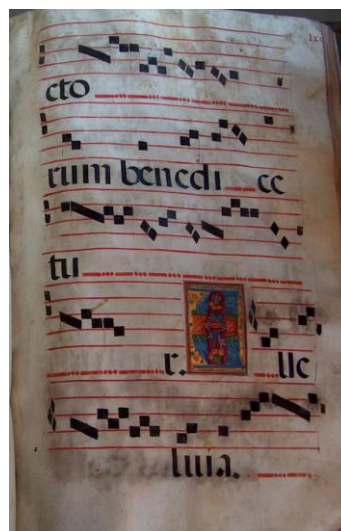 cto
rum benedi ce
tu
r. A lle
luia.